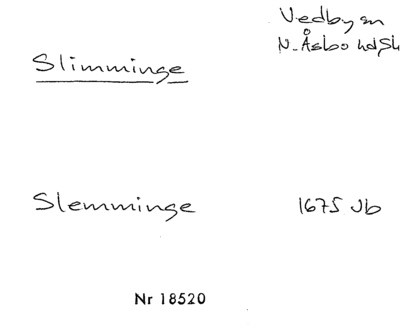 Vedby sn
N. Åsbo hd Sk
Slimminge
Slemminge 1675 Jb
Nr 18520